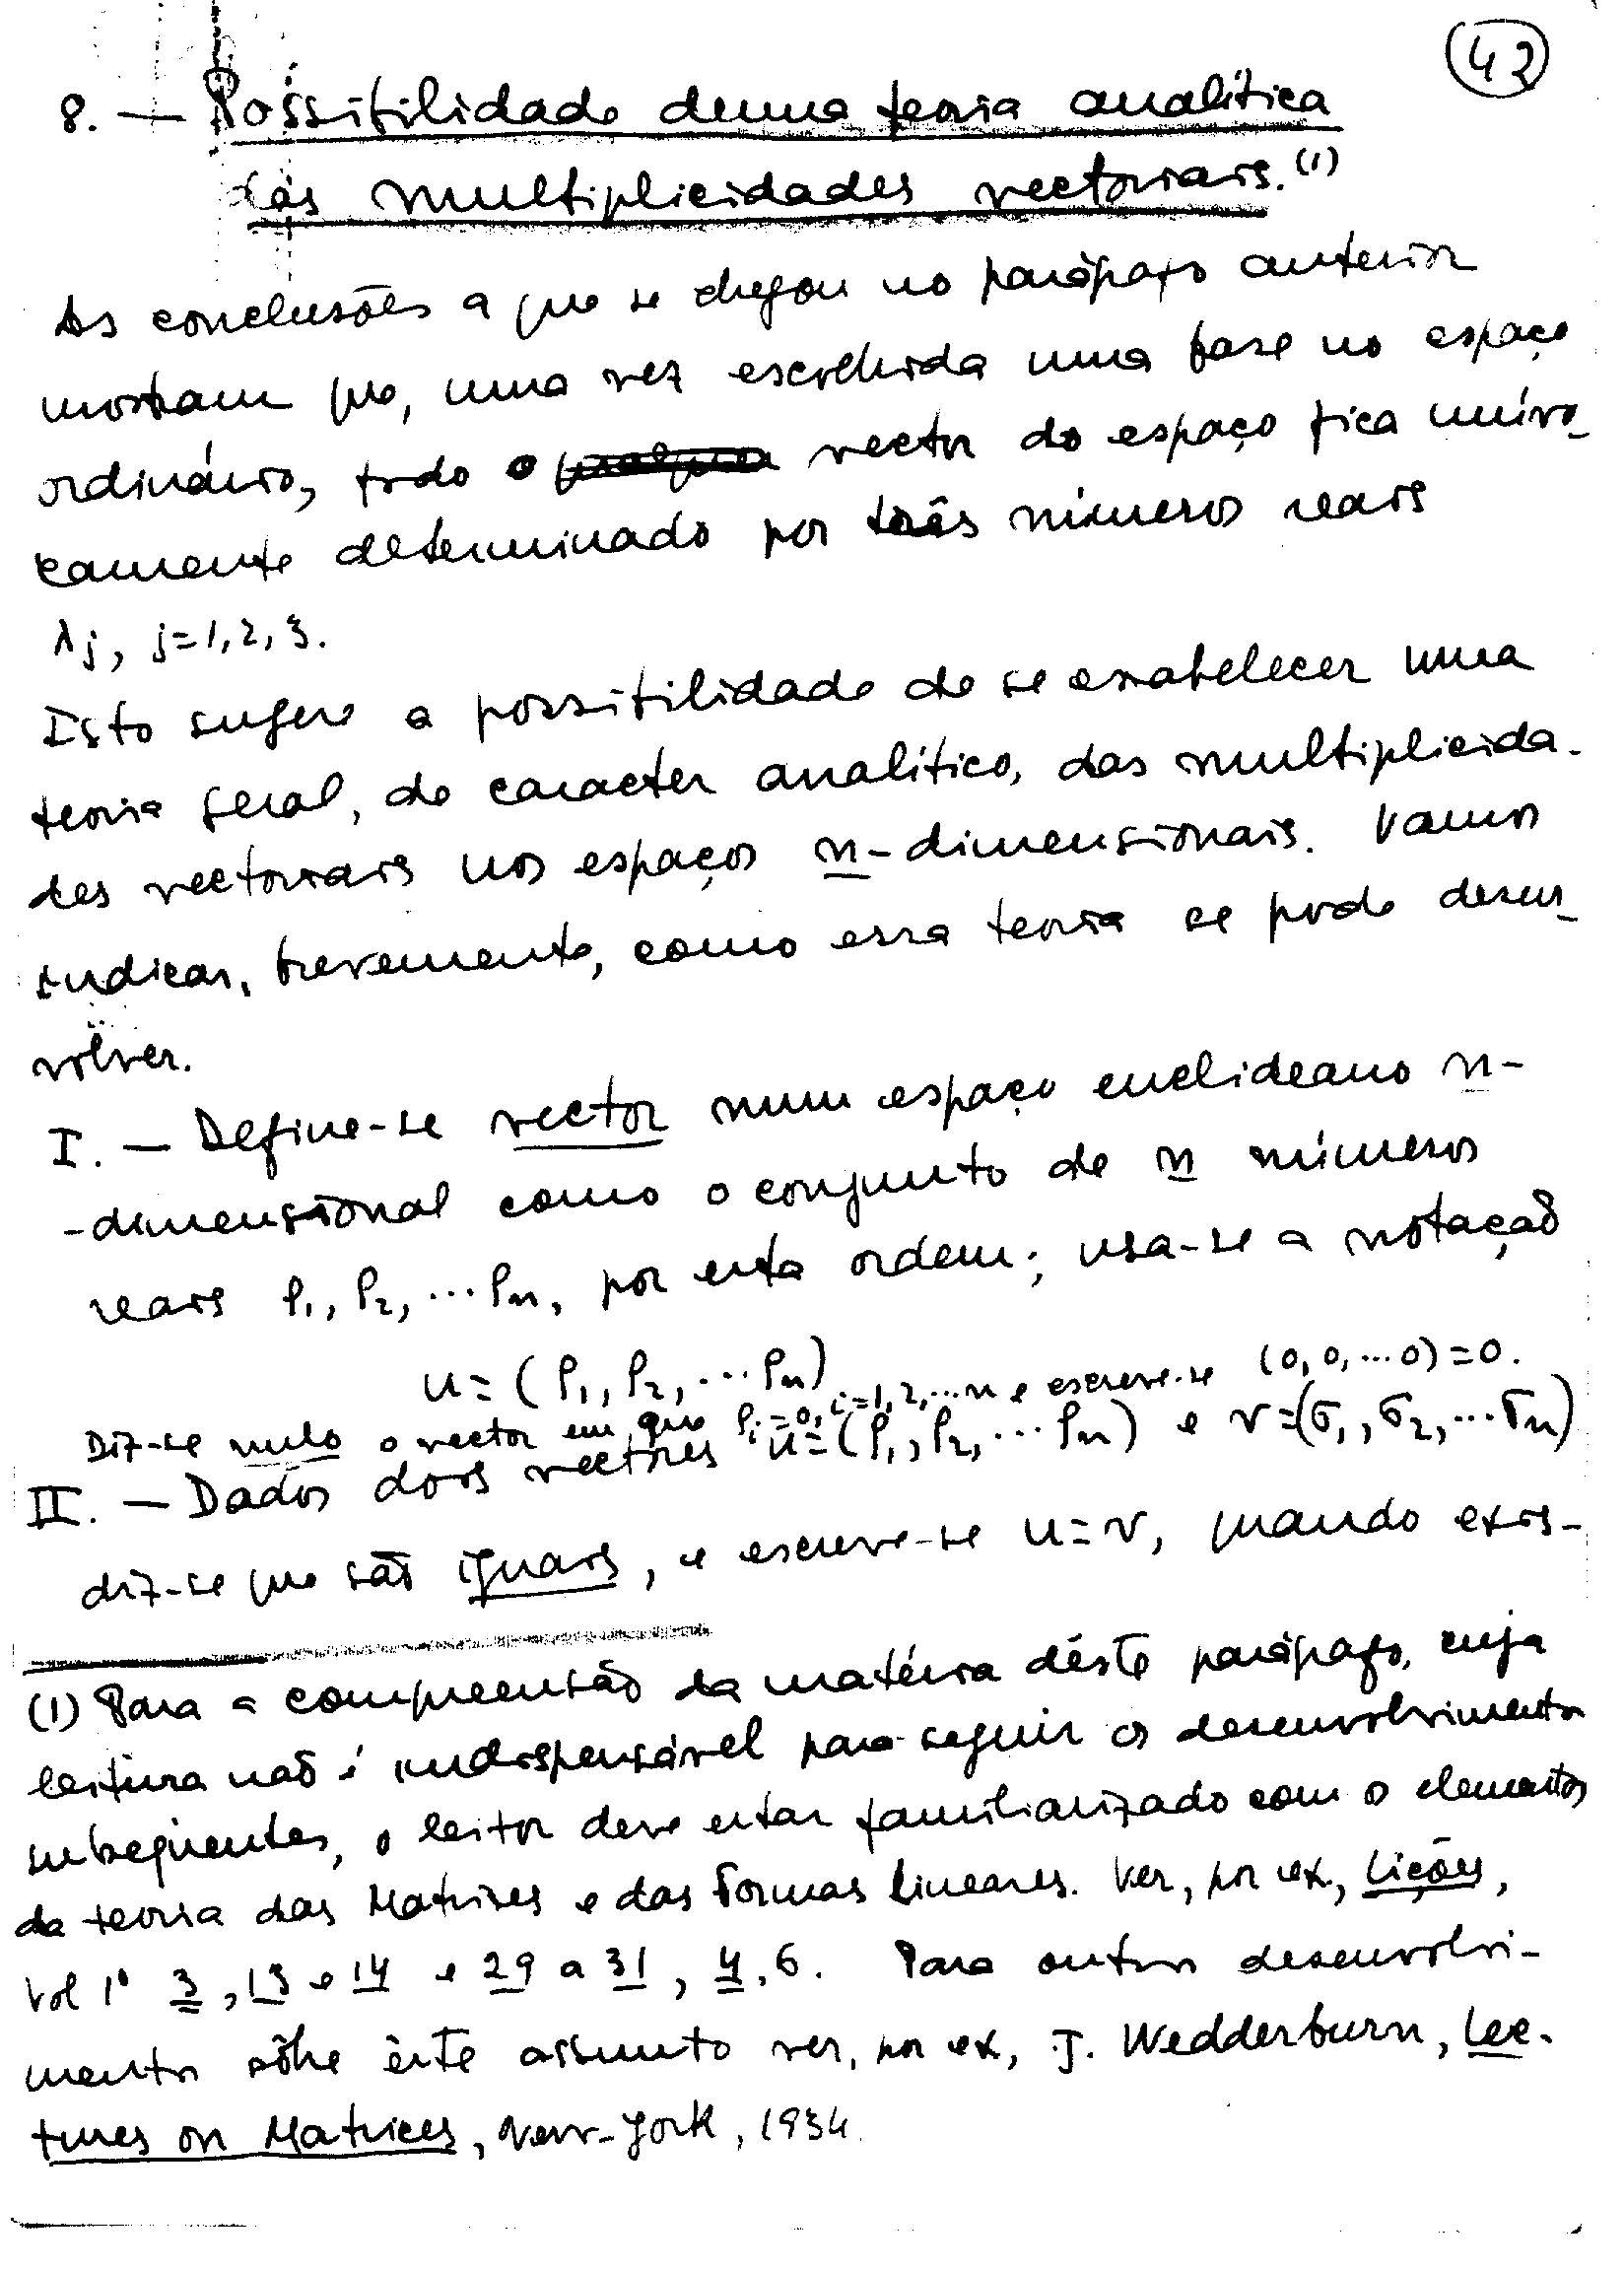 42
8. — Possibilidade duma teoria analítica
das multiplicidades vectoriais. (1)
As conclusões a que se chegou no parágrafo anterior
mostram que, uma vez escolhida uma base no espaço
ordinário, todo o vector do espaço fica unívo-
camente determinado por três números reais
λj, j=1,2,3.
Isto sugere a possibilidade de se estabelecer uma
teoria geral, de caracter analítico, das multiplicida-
des vectoriais nos espaços n-dimensionais. Vamos
indicar, brevemente, como essa teoria se pode desen-
volver.
I. — Define-se vector num espaço euclideano n-
-dimensional como o conjunto de n números
reais ρ1, ρ2, ... ρn, por esta ordem; usa-se a notação
u = (ρ1, ρ2, ... ρn)
Diz-se nulo o vector em que ρi=0, i=1,2,...n e escreve-se (0,0,...0)=0.
II. — Dados dois vectores u=(ρ1, ρ2, ... ρn) e v=(σ1, σ2, ... σn)
diz-se que são iguais, e escreve-se u=v, quando exis-
(1) Para a compreensão da matéria dêste parágrafo, cuja
leitura não é indispensável para seguir os desenvolvimentos
subseqüentes, o leitor deve estar familiarizado com os elementos
da teoria das Matrizes e das Formas lineares. Ver, por ex., Lições,
vol 1º 3, 13 e 14 e 29 a 31, 4, 6. Para outros desenvolvi-
mentos sôbre êste assunto ver, por ex, J. Wedderburn, Lec-
tures on Matrices, New-York, 1934.